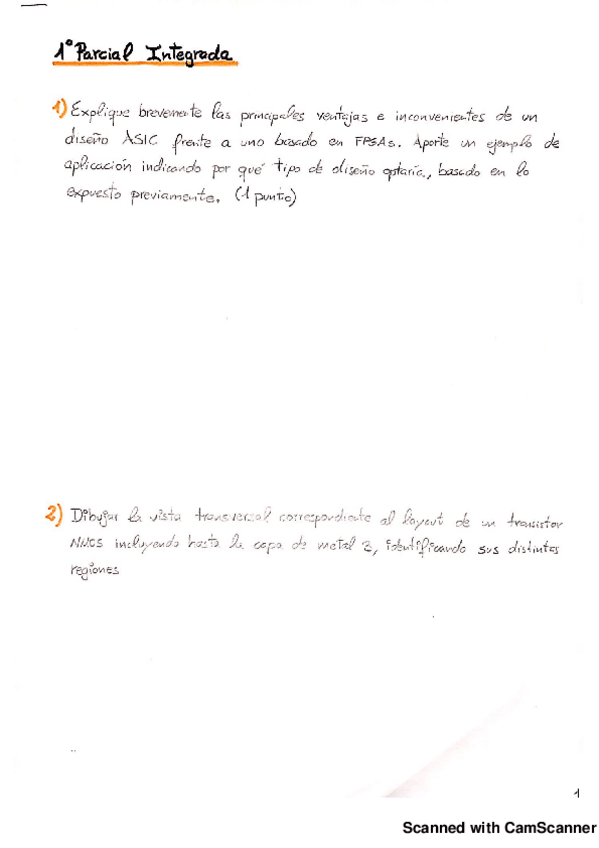 1º Parcial Integrada
1) Explique brevemente las principales ventajas e inconvenientes de un
diseño ASIC frente a uno basado en FPGAs. Aporte un ejemplo de
aplicación indicando por qué tipo de diseño optaría, basado en lo
expuesto previamente. (1 punto)
2) Dibujar la vista transversal correspondiente al layout de un transistor
NMOS incluyendo hasta la capa de metal 3, identificando sus distintas
regiones
1
Scanned with CamScanner